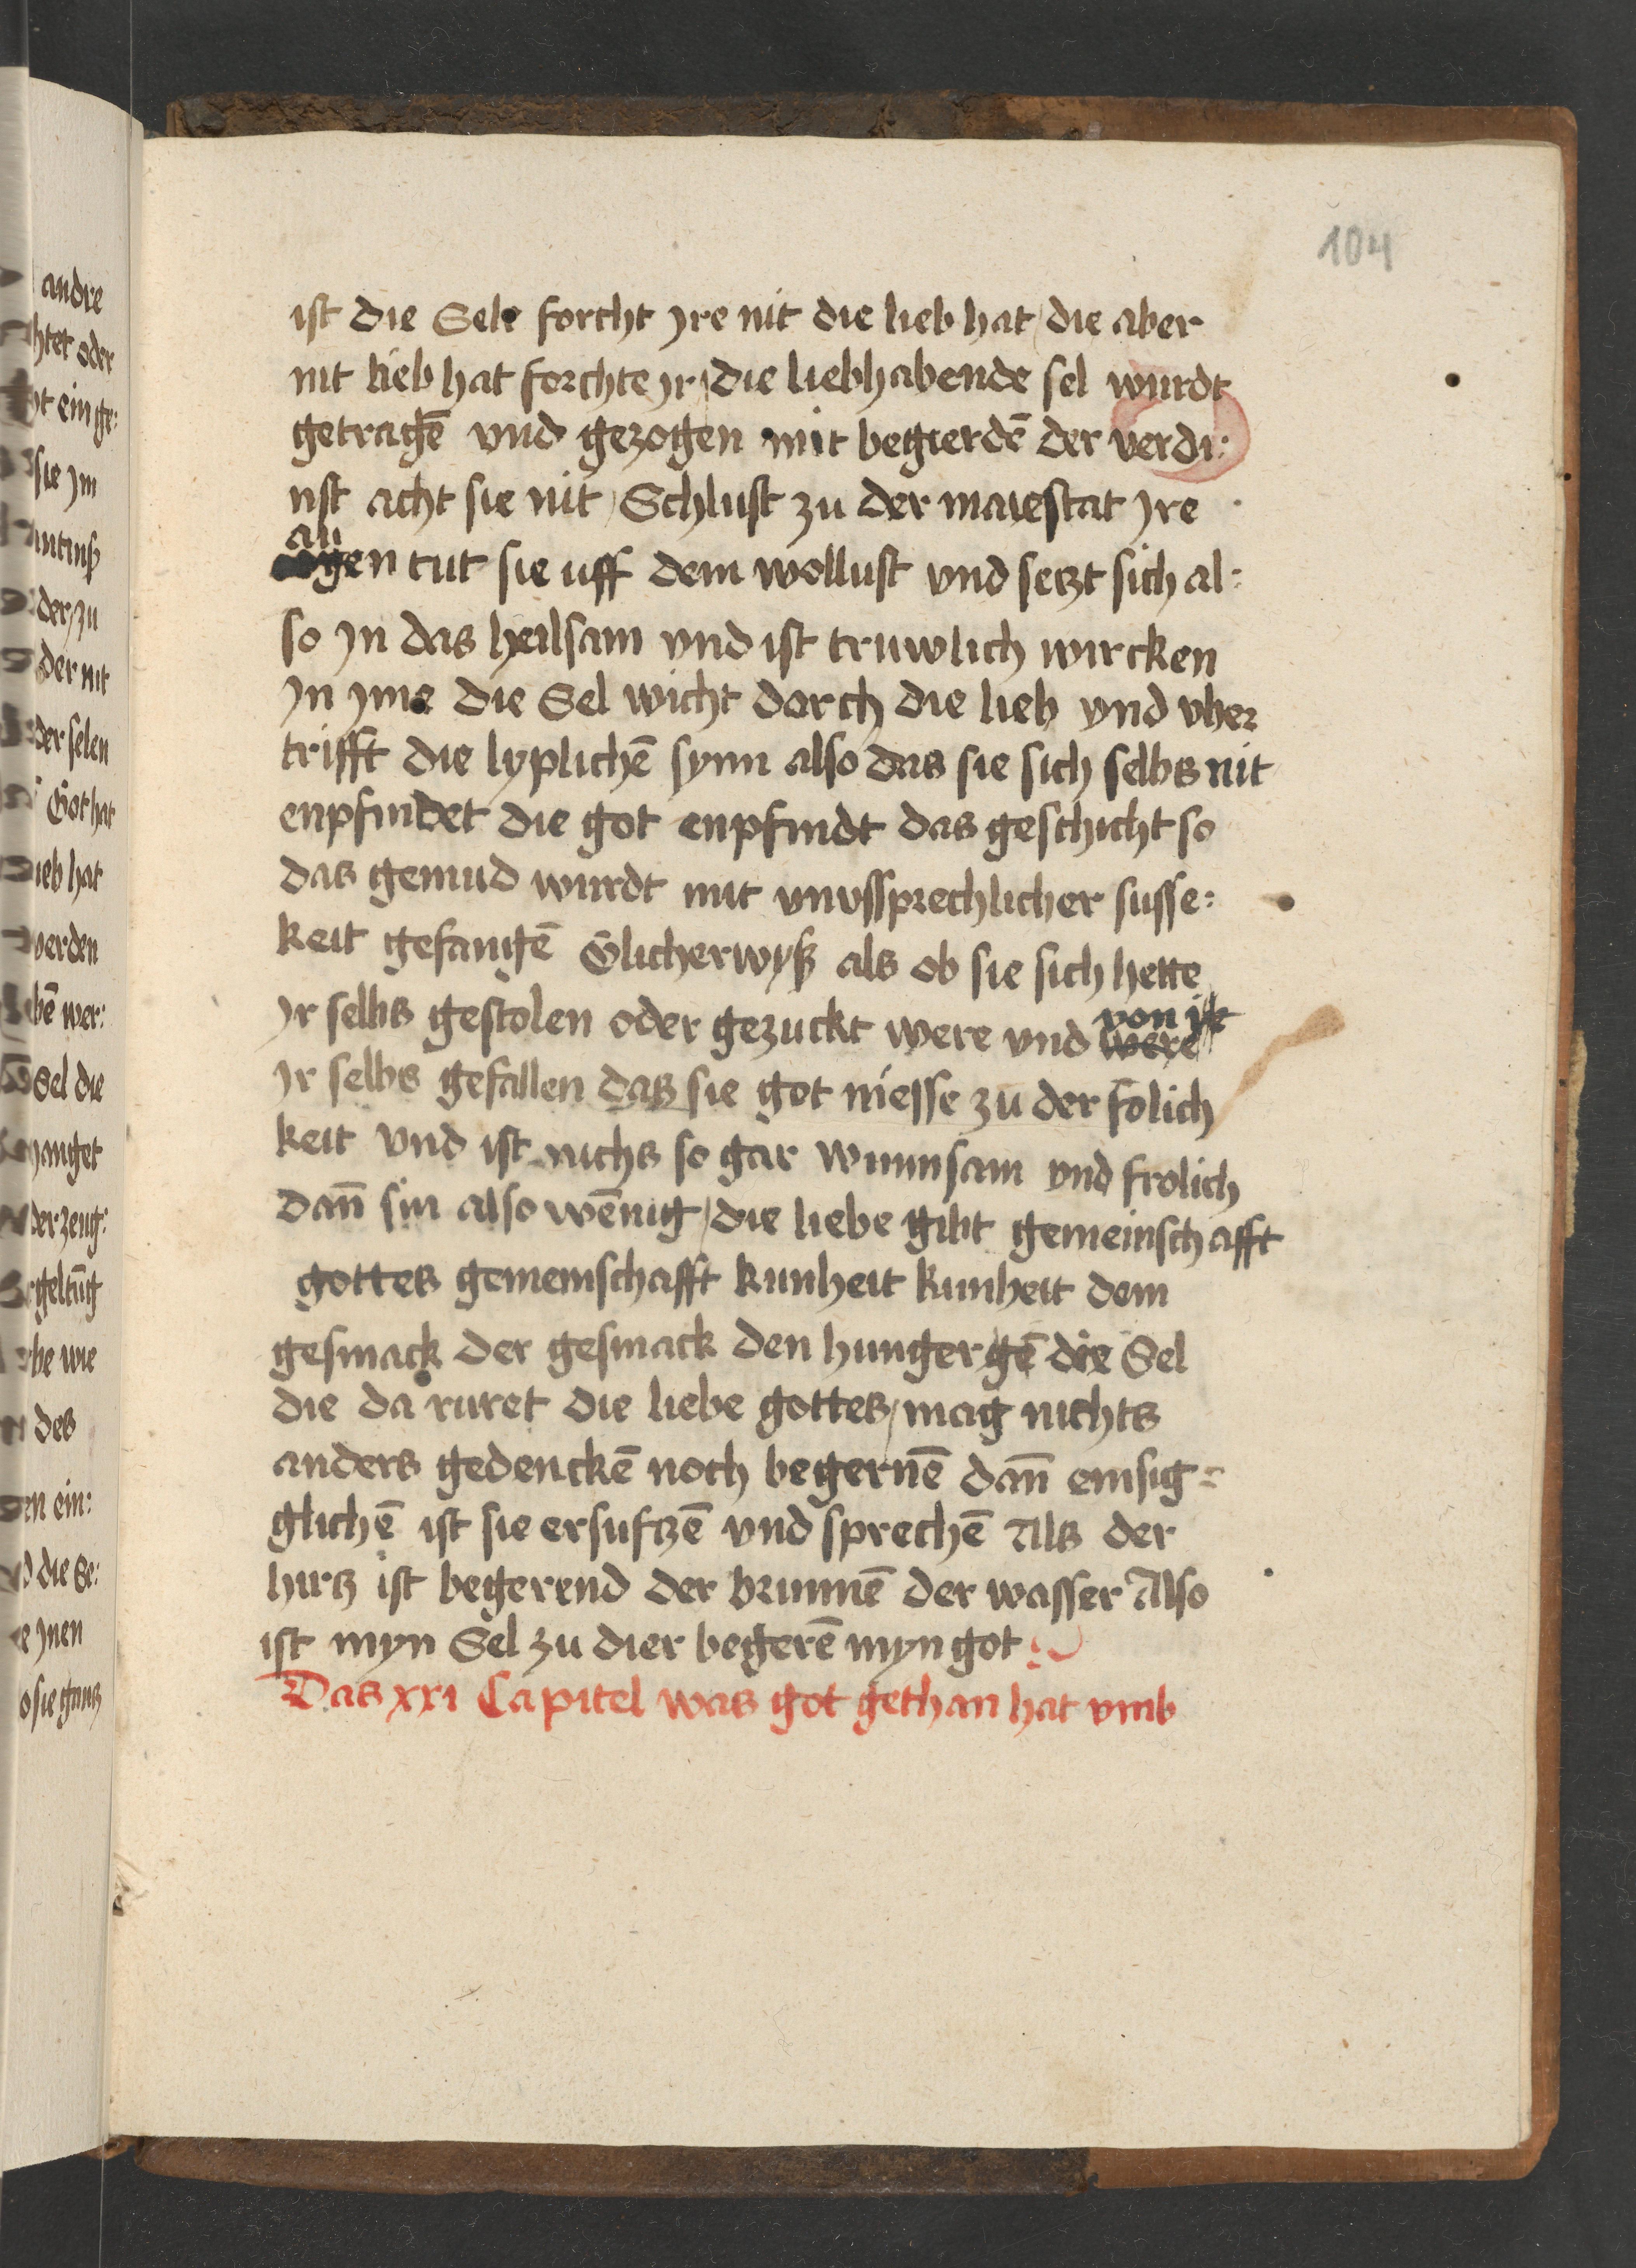 104
ist die Sele forcht yre nit die lieb hat / die aber
nit lieb hat forchte yr / die liebhabende sel wurdt
getragē vnd gezogen mit begierdē der verdi:
nst acht sie nit / Schlust zu der maiestat yre
au
gen tut sie uff dem wollust vnd setzt sich al:
so yn das heilsam vnd ist truwlich wircken
yn yme die Sel wicht dorch die lieb vnd vber
trifft die lyplichē synn also das sie sich selbs nit
enpfindet die got enpfindt das geschicht so
das gemud wurdt mit vnvssprechlicher susse:
keit gefangē Glicherwyß als ob sie sich hette
yr selbs gestolen oder gezuckt were vnd were
von
yr selbs gefallen das sie got niesse zu der folich
keit vnd ist nichs so gar wunnsam vnd frolich
dañ sin also wēnig / die liebe gibt gemeinschafft
gottes gemeinschafft kunheit kunheit dem
gesmack der gesmack den hungergē die Sel
die da ruret die liebe gottes / mag nichts
anders gedenckē noch begernē dañ einsig:
glichē ist sie ersuftzē vnd sprechē Als der
hirtz ist begerend der brunnē der wasser Also
ist myn Sel zu dier begerē myn got
Das xxi Capitel was got gethan hat vmb
andre
htet oder
ht ein ge:
sie ym
der / zu
der nit
der selen
Got hat
ieb hat
werden
bē wer:
Sel die
hanget
der zeug:
geltūg
be wie
des
en ein:
die Se:
e ynen
o sie gantz